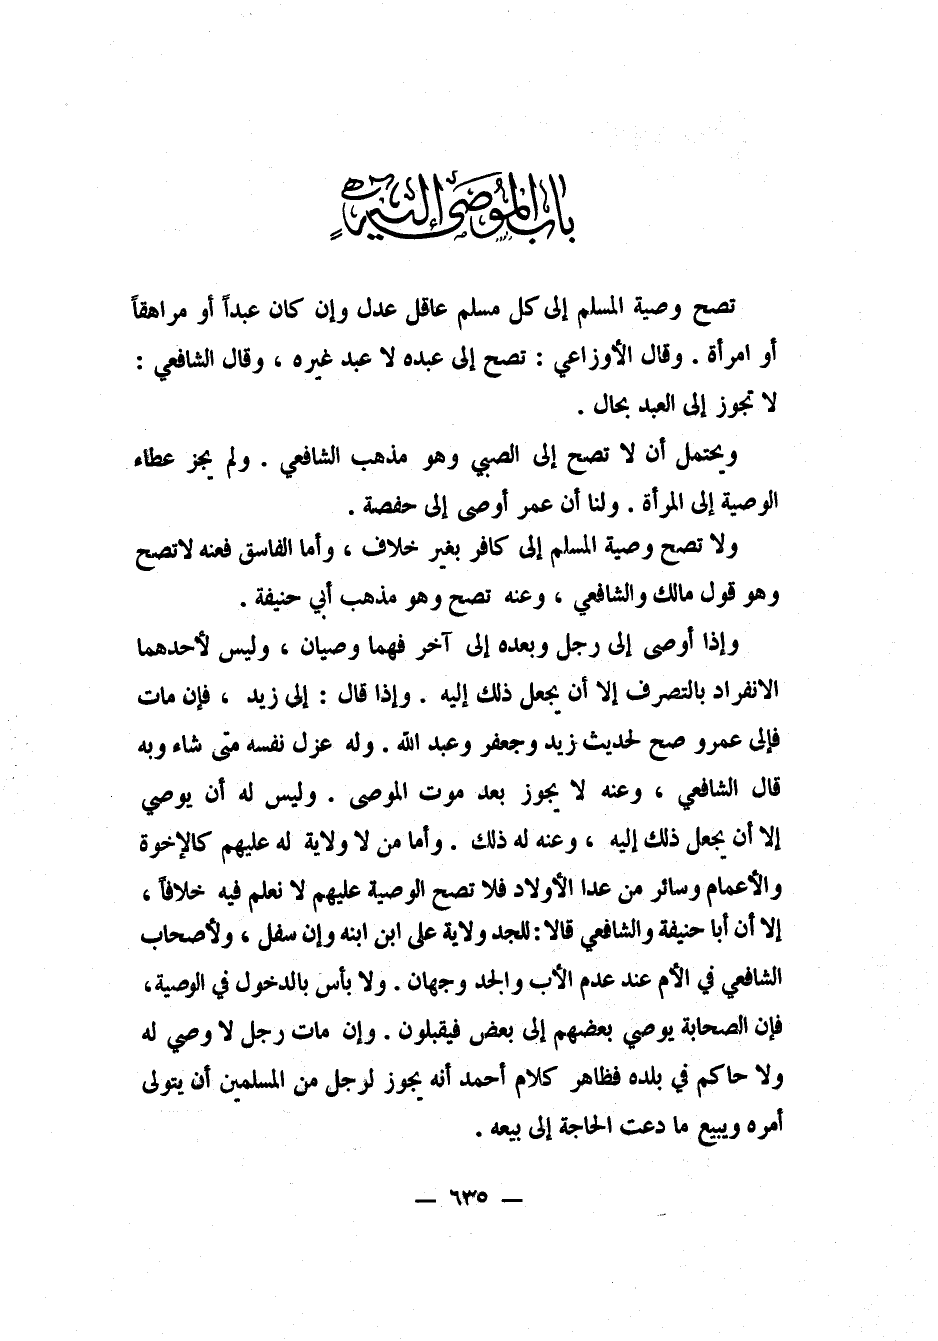 باب الموصى إليه
تصح وصية المسلم إلى كل مسلم عاقل عدل وإن كان عبداً أو مراهقاً
أو امرأة . وقال الأوزاعي : تصح إلى عبده لا عبد غيره ، وقال الشافعي :
لا تجوز إلى العبد بحال .
ويحتمل أن لا تصح إلى الصبي وهو مذهب الشافعي . ولم يجز عطاء
الوصية إلى المرأة . ولنا أن عمر أوصى إلى حفصة .
ولا تصح وصية المسلم إلى كافر بغير خلاف ، وأما الفاسق فعنه لاتصح
وهو قول مالك والشافعي ، وعنه تصح وهو مذهب أبي حنيفة .
وإذا أوصى إلى رجل وبعده إلى آخر فهما وصيان ، وليس لأحدهما
الانفراد بالتصرف إلا أن يجعل ذلك إليه . وإذا قال : إلى زيد ، فإن مات
فإلى عمرو صح لحديث زيد وجعفر وعبد الله . وله عزل نفسه متى شاء وبه
قال الشافعي ، وعنه لا يجوز بعد موت الموصى . وليس له أن يوصي
إلا أن يجعل ذلك إليه ، وعنه له ذلك . وأما من لا ولاية له عليهم كالإخوة
والأعمام وسائر من عدا الأولاد فلا تصح الوصية عليهم لا نعلم فيه خلافاً ،
إلا أن أبا حنيفة والشافعي قالا : للجد ولاية على ابن ابنه وإن سفل ، ولأصحاب
الشافعي في الأم عند عدم الأب والجد وجهان . ولا بأس بالدخول في الوصية ،
فإن الصحابة يوصي بعضهم إلى بعض فيقبلون . وإن مات رجل لا وصي له
ولا حاكم في بلده فظاهر كلام أحمد أنه يجوز لرجل من المسلمين أن يتولى
أمره ويبيع ما دعت الحاجة إلى بيعه .
— ٦٣٥ —